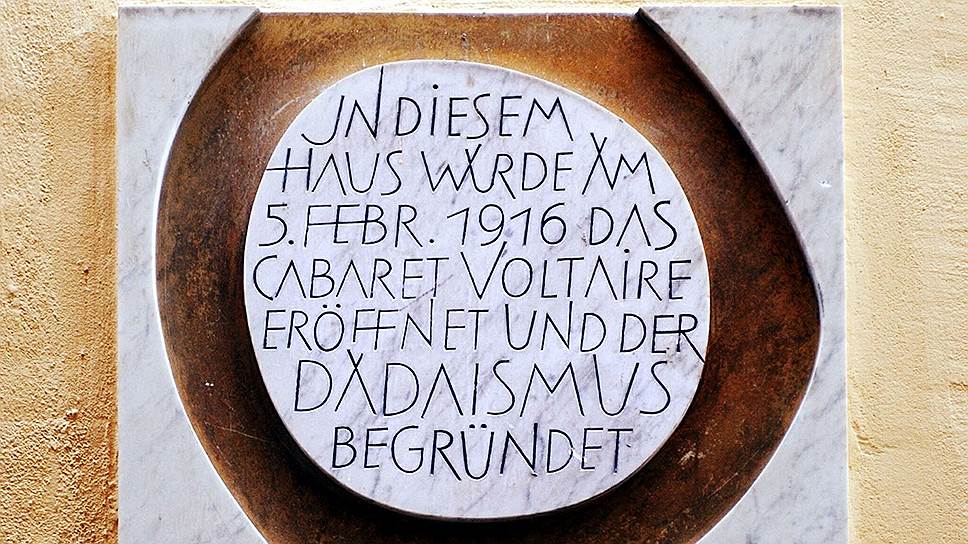 IN DIESEM
HAUS WURDE AM
5. FEBR. 1916 DAS
CABARET VOLTAIRE
ERÖFFNET UND DER
DADAISMUS
BEGRÜNDET